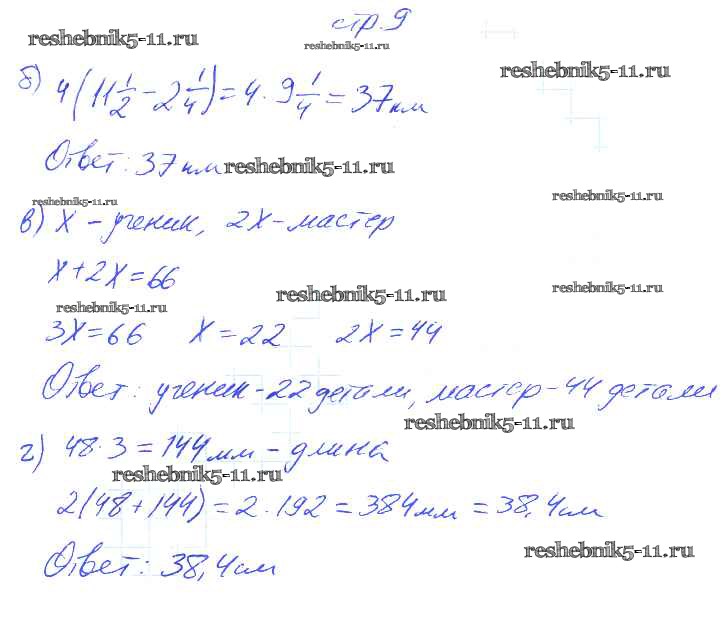 стр. 9
reshebnik5-11.ru
reshebnik5-11.ru
reshebnik5-11.ru
б) 4(11 1/2 - 2 1/4) = 4 · 9 1/4 = 37 км
Ответ: 37 км reshebnik5-11.ru
reshebnik5-11.ru
reshebnik5-11.ru
в) х - ученик, 2х - мастер
х + 2х = 66
reshebnik5-11.ru
reshebnik5-11.ru
reshebnik5-11.ru
3х = 66 х = 22 2х = 44
Ответ: ученик - 22 детали, мастер - 44 детали
reshebnik5-11.ru
г) 48 · 3 = 144 мм - длина
reshebnik5-11.ru
2(48 + 144) = 2 · 192 = 384 мм = 38,4 см
reshebnik5-11.ru
Ответ: 38,4 см